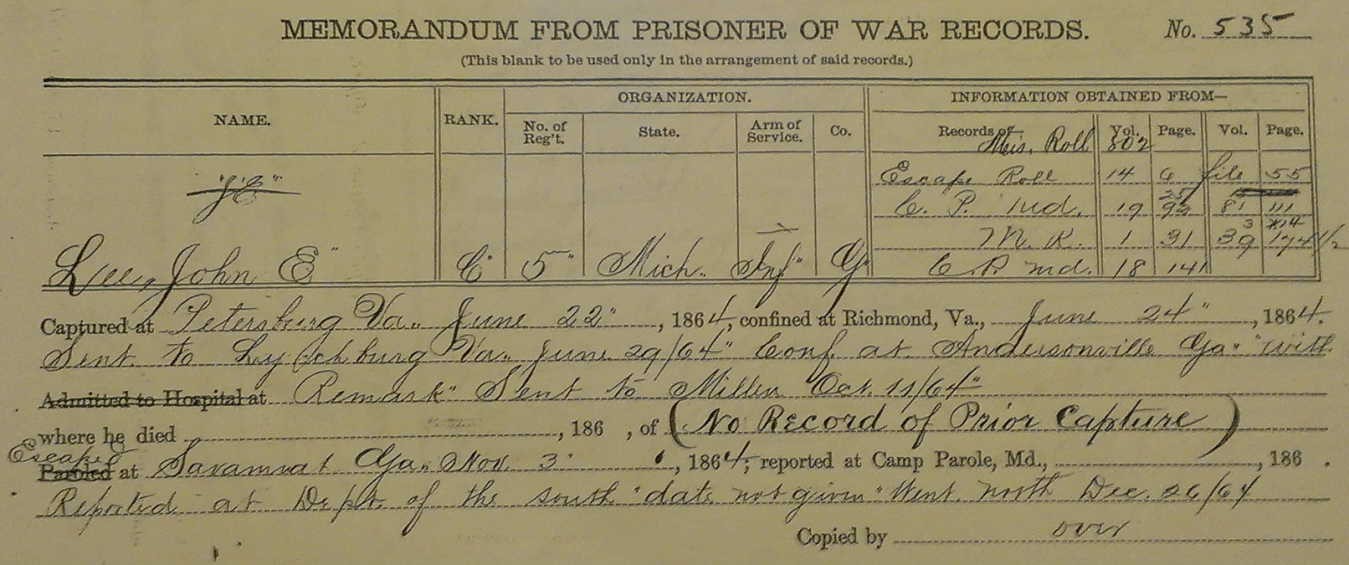 MEMORANDUM FROM PRISONER OF WAR RECORDS. No. 535
(This blank to be used only in the arrangement of said records.)
NAME. RANK. ORGANIZATION. INFORMATION OBTAINED FROM—
No. of Reg't. State. Arm of Service. Co. Records of Vol. Page. Vol. Page.
Mis. Roll 802
"J E" Escape Roll 14 6 file 55
C. P. Md. 19 93 81 111
M. R. 1 31 39 174 1/2
Lee, John E" C" 5" Mich. Inf" G" C. P. Md. 18 141
Captured at Petersburg Va., June 22", 1864, confined at Richmond, Va., June 24", 1864.
Sent to Lychburg Va., June 29/64" Conf. at Andersonville Ga" "with
Admitted to Hospital at Remark" Sent to Millen Oct. 11/64"
where he died , 186 , of (No Record of Prior Capture)
Escaped
Paroled at Savannah Ga. Nov. 3 , 1864, reported at Camp Parole, Md., , 186 .
Reported at Dept. of the south "date not given" Went north Dec. 26/64
Copied by over